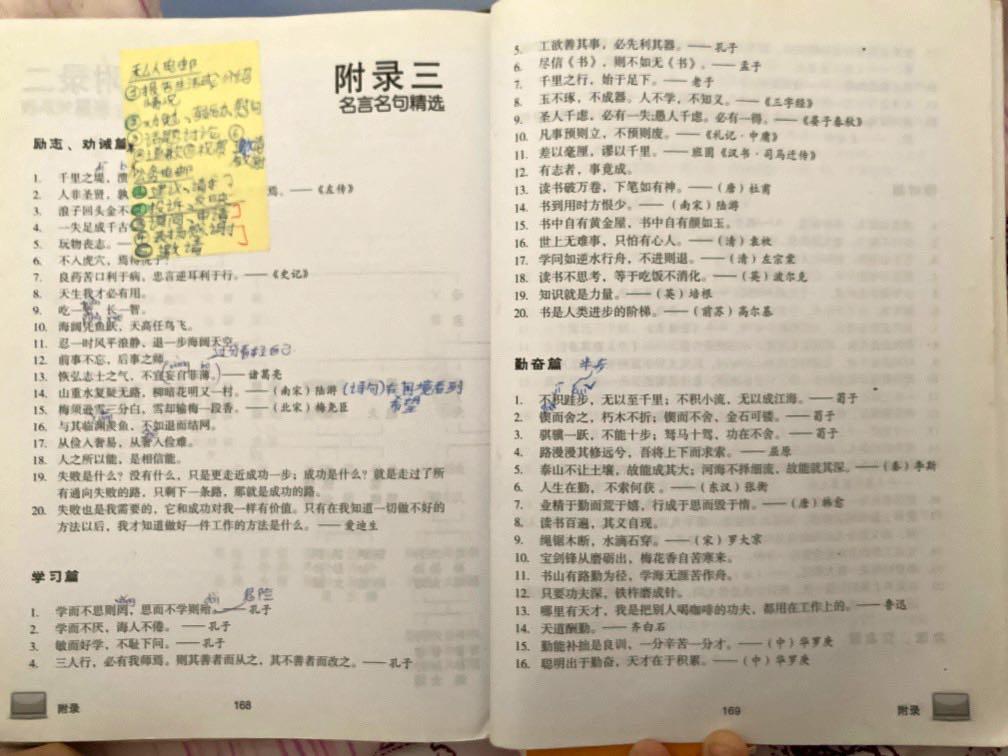 附录三
名言名句精选
私人电邮
励志、劝诫篇
1. 千里之堤，溃
2. 人非圣贤，孰 焉。——《左传》
3. 浪子回头金不
4. 一失足成千古
5. 玩物丧志。—
6. 不入虎穴，焉得虎子？
7. 良药苦口利于病，忠言逆耳利于行。——《史记》
8. 天生我才必有用。
9. 吃一堑，长一智。
10. 海阔凭鱼跃，天高任鸟飞。
11. 忍一时风平浪静，退一步海阔天空。
12. 前事不忘，后事之师。
13. 恢弘志士之气，不宜妄自菲薄。——诸葛亮
14. 山重水复疑无路，柳暗花明又一村。——（南宋）陆游
希望
15. 梅须逊雪三分白，雪却输梅一段香。——（北宋）梅尧臣
16. 与其临渊羡鱼，不如退而结网。
17. 从俭入奢易，从奢入俭难。
18. 人之所以能，是相信能。
19. 失败是什么？没有什么，只是更走近成功一步；成功是什么？就是走过了所
有通向失败的路，只剩下一条路，那就是成功的路。
20. 失败也是我需要的，它和成功对我一样有价值。只有在我知道一切做不好的
方法以后，我才知道做好一件工作的方法是什么。——爱迪生
学习篇
危险
1. 学而不思则罔，思而不学则殆。——孔子
2. 学而不厌，诲人不倦。——孔子
3. 敏而好学，不耻下问。——孔子
4. 三人行，必有我师焉。则其善者而从之，其不善者而改之。——孔子
附录
168
5. 工欲善其事，必先利其器。——孔子
6. 尽信《书》，则不如无《书》。——孟子
7. 千里之行，始于足下。——老子
8. 玉不琢，不成器。人不学，不知义。——《三字经》
9. 圣人千虑，必有一失；愚人千虑。必有一得。——《晏子春秋》
10. 凡事预则立，不预则废。——《礼记·中庸》
11. 差以毫厘，谬以千里。——班固《汉书·司马迁传》
12. 有志者，事竟成。
13. 读书破万卷，下笔如有神。——（唐）杜甫
14. 书到用时方恨少。——（南宋）陆游
15. 书中自有黄金屋，书中自有颜如玉。
16. 世上无难事，只怕有心人。——（清）袁枚
17. 学问如逆水行舟，不进则退。——（清）左宗棠
18. 读书不思考，等于吃饭不消化。——（英）波尔克
19. 知识就是力量。——（英）培根
20. 书是人类进步的阶梯。——（前苏）高尔基
勤奋篇
1. 不积跬步，无以至千里；不积小流，无以成江海。——荀子
2. 锲而舍之，朽木不折；锲而不舍，金石可镂。——荀子
3. 骐骥一跃，不能十步；驽马十驾，功在不舍。——荀子
4. 路漫漫其修远兮，吾将上下而求索。——屈原
5. 泰山不让土壤，故能成其大；河海不择细流，故能就其深。——（秦）李斯
6. 人生在勤，不索何获。——（东汉）张衡
7. 业精于勤而荒于嬉，行成于思而毁于惰。——（唐）韩愈
8. 读书百遍，其义自现。
9. 绳锯木断，水滴石穿。——（宋）罗大京
10. 宝剑锋从磨砺出，梅花香自苦寒来。
11. 书山有路勤为径，学海无涯苦作舟。
12. 只要功夫深，铁杵磨成针。
13. 哪里有天才，我是把别人喝咖啡的功夫，都用在工作上的。——鲁迅
14. 天道酬勤。——齐白石
15. 勤能补拙是良训，一分辛苦一分才。——（中）华罗庚
16. 聪明出于勤奋，天才在于积累。——（中）华罗庚
169
附录